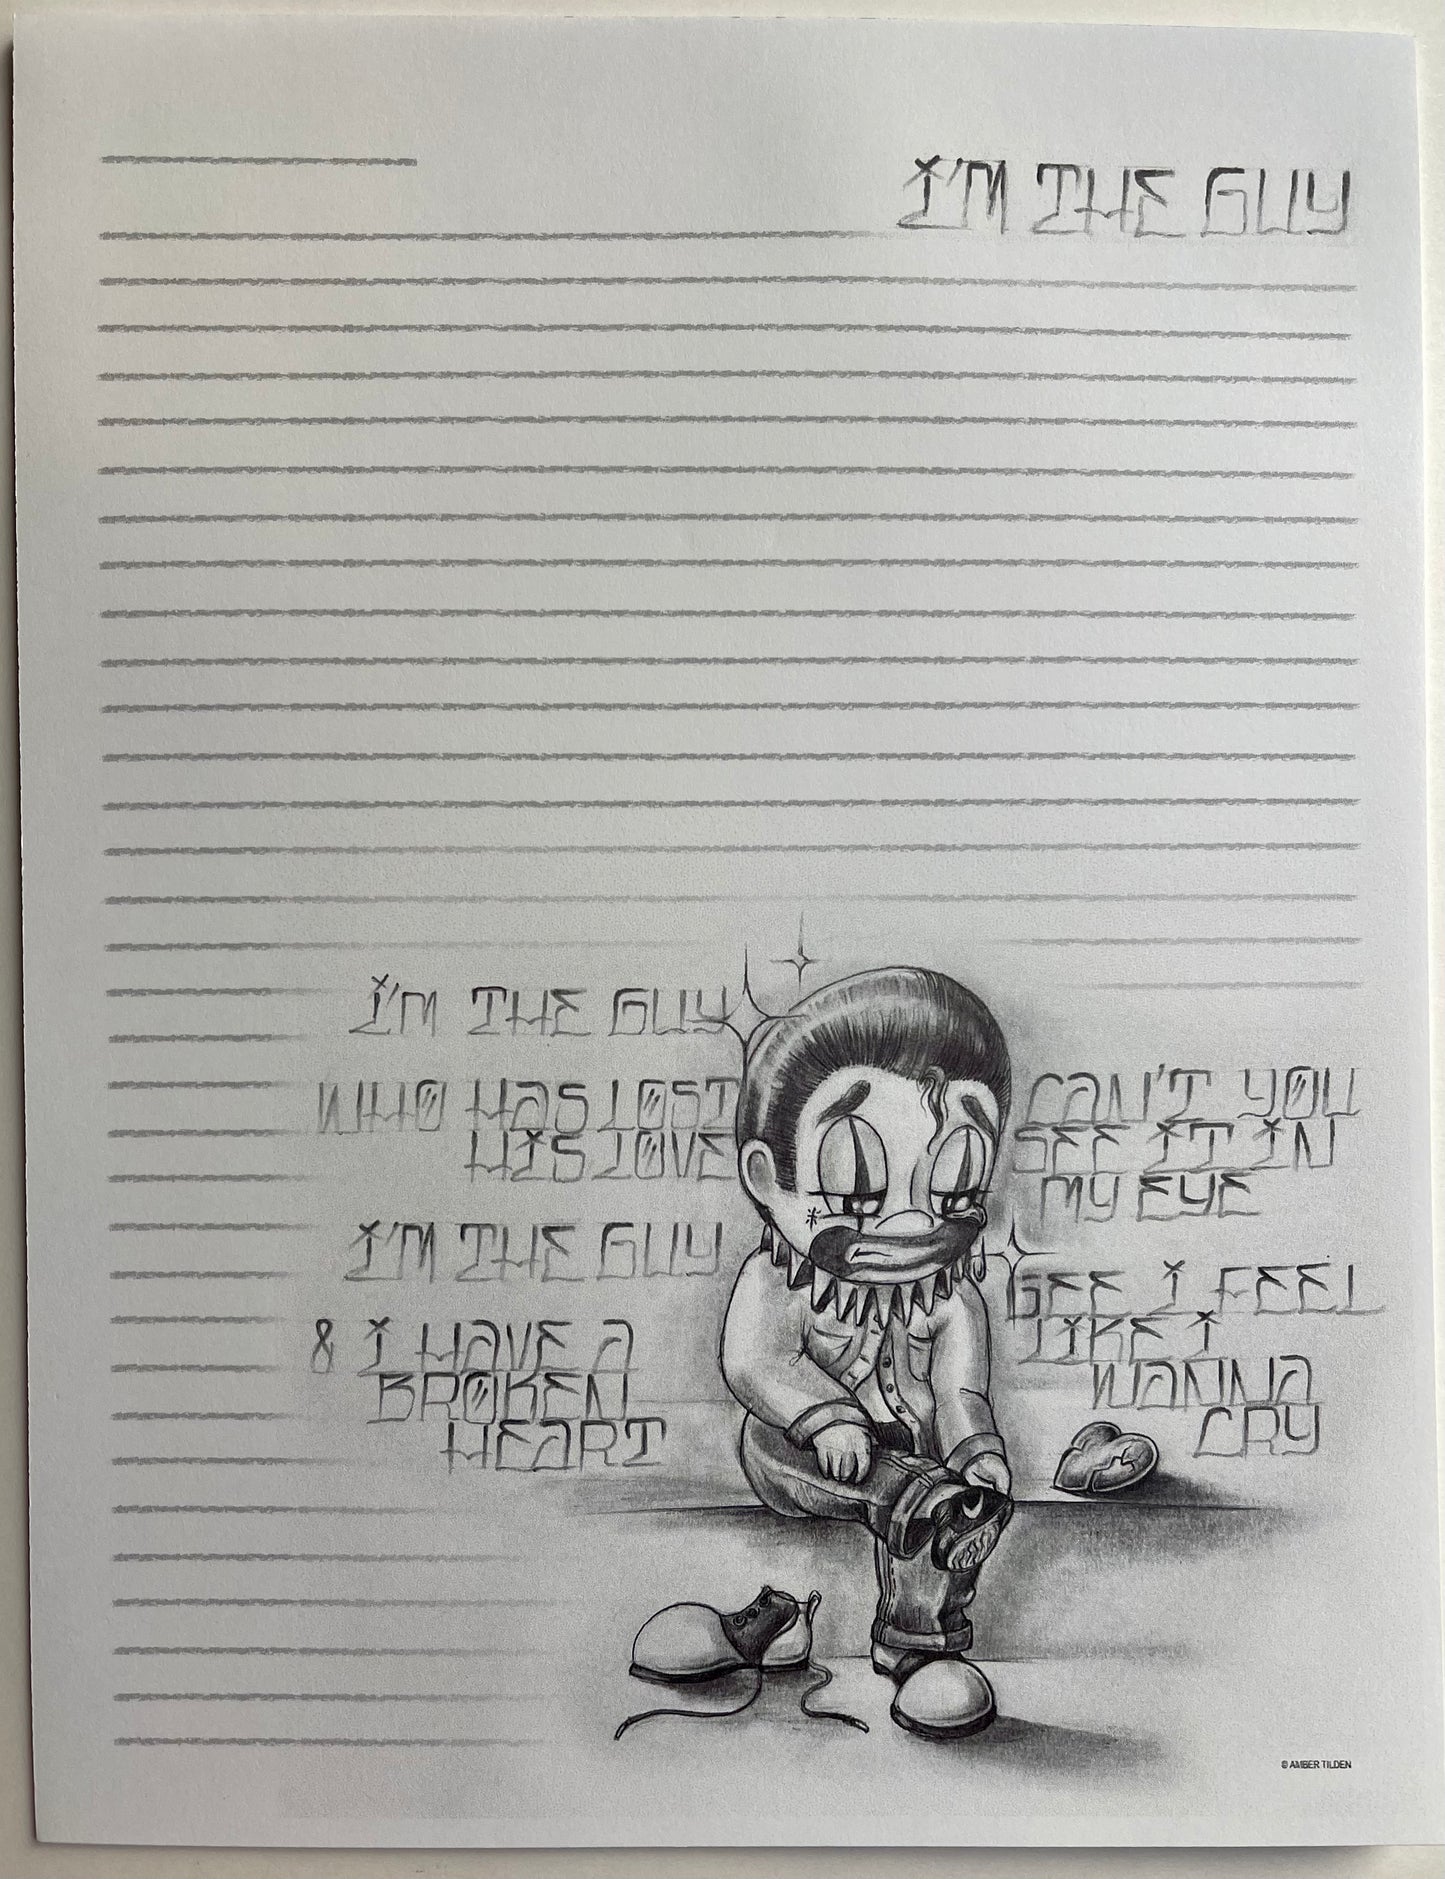 I'M THE GUY
I'M THE GUY
WHO HAS LOST
HIS LOVE
I'M THE GUY
& I HAVE A
BROKEN
HEART
CAN'T YOU
SEE IT IN
MY EYE
GEE I FEEL
LIKE I
WANNA
CRY
© AMBER TILDEN